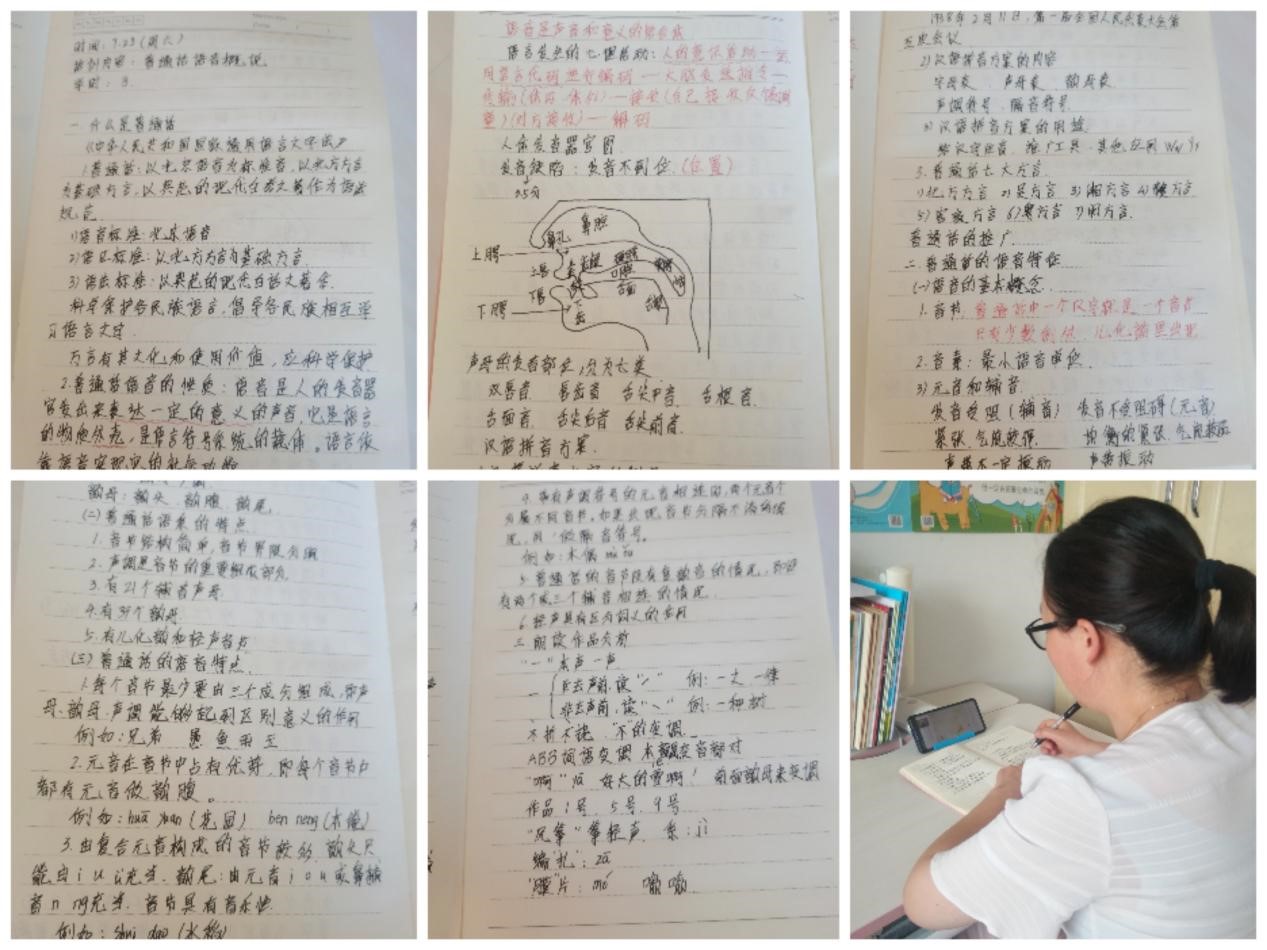 时间：7.23（周六）
培训内容：普通话语音概说
学时：3.
一、什么是普通话
《中华人民共和国国家通用语言文字法》
1.普通话：以北京语音为标准音，以北方方言
为基础方言，以典范的现代白话文著作为语法
规范.
1)语音标准：北京语音
2)词汇标准：以北方方言为基础方言.
3)语法标准：以典范的现代白话文著作.
科学保护各民族语言，倡导各民族相互学
习语言文字.
方言有其文化和使用价值，应科学保护
2.普通话语音的性质：语音是人的发音器
官发出来表达一定的意义的声音，它是语言
的物质外壳，是语言符号系统的载体。语言依
靠语音实现它的社会功能
语音是声音和意义的结合体
语言发出的七课活动：人的意识活动一
用言语代码进行编码一大脑发出指令一
传输（体内、体外）一接收（自己接收反馈调
整）（对方接收）一解码
人体发音器官图
发音缺陷：发音不到位.（位置）
0.5分
鼻腔
鼻孔
上腭
上唇
口腔
下唇
舌面
下腭
声母的发音部位，分为七类
双唇音 唇齿音 舌尖中音 舌根音
舌面音 舌尖后音 舌尖前音
汉语拼音方案.
1958年2月11日，第一届全国人民代表大会第
五次会议
2)汉语拼音方案的内容
字母表、声母表、韵母表
声调符号、隔音符号.
3)汉语拼音方案的用途
给汉字注音、推广工具、其他应用
3.普通话七大方言.
1)北方方言 2)吴方言 3)湘方言 4)赣方言
5)客家方言 6)粤方言 7)闽方言.
普通话的推广
二.普通话的语音特征
(一)语音的基本概念.
1.音节.普通话中一个汉字就是一个音节
只有少数例外，儿化韵里出现
2.音素：最小语音单位.
3)元音和辅音.
发音受阻（辅音） 发音不受阻碍（元音）
紧张.气流较强. 均衡的紧张.气流较弱
声带不一定振动 声带振动
韵母：韵头、韵腹、韵尾.
(二)普通话语音的特点.
1.音节结构简单，音节界限分明
2.声调是音节的重要组成部分.
3.有21个辅音声母.
4.有39个韵母.
5.有儿化韵和轻声音节
(三)普通话的语音特点.
1.每个音节最少要由三个成分组成，即声
母、韵母、声调.能够起到区别意义的作用
例如：兄弟 愚 鱼 雨 玉
2.元音在音节中占有优势，即每个音节中
都有元音做韵腹。
例如：huā yuán（花园） běn néng（本能）
3.由复合元音构成的音节较多.韵头只
能由 i u ü充当.韵尾：由元音 i o u 或鼻辅
音n ng充当.音节具有音乐性.
例如：shuǐ dào（水稻）
4.带有声调符号的元音相连的，两个元音分
为属不同音节，如果出现音节分隔不清的情
况，用 ' 做隔音符号。
例如：木偶
5.普通话的音节没有复辅音的情况，即没
有两个或三个辅音相连的情况.
6.轻声具有区分词义的作用
三.朗读作品分析
“一”本声一声
一 { 在去声前.读“ˊ” 例：一丈 一律
非去声前.读“ˋ” 例：一种树
不折不挠 “不”的变调
ABB词语变调
“啊” 好大的雪啊！前面韵母来变调
作品1号、5号、9号
“风筝”筝轻声. 系：jì
编扎：zā
“膜”片：mó 嗡嗡